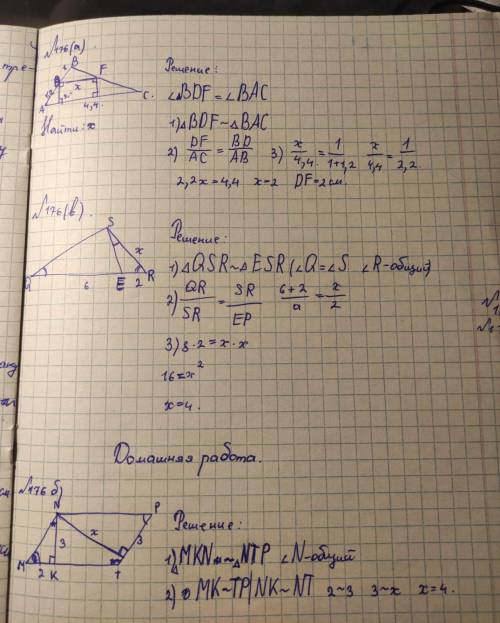 №176(а)
B
F
x
1,2
A
4,4
C
Найти: x
Решение:
∠BDF = ∠BAC
1) △BDF ~ △BAC
2) DF/AC = BD/AB 3) x/4,4 = 1/1+1,2 x/4,4 = 1/2,2
2,2x = 4,4 x = 2 DF = 2 см.
№176(в).
S
x
Q
6
E
2
R
Решение:
1) △QSR ~ △ESR (∠Q = ∠S ∠R - общий)
2) QR/SR = SR/EP 6+2/a = x/2
3) 8·2 = x·x
16 = x²
x = 4.
Домашняя работа.
№176 б)
N
P
3
x
3
M
2
K
T
Решение:
1) △MKN ~ △NTP ∠N - общий
2) MK ~ TP | NK ~ NT 2 ~ 3 3 ~ x x = 4.